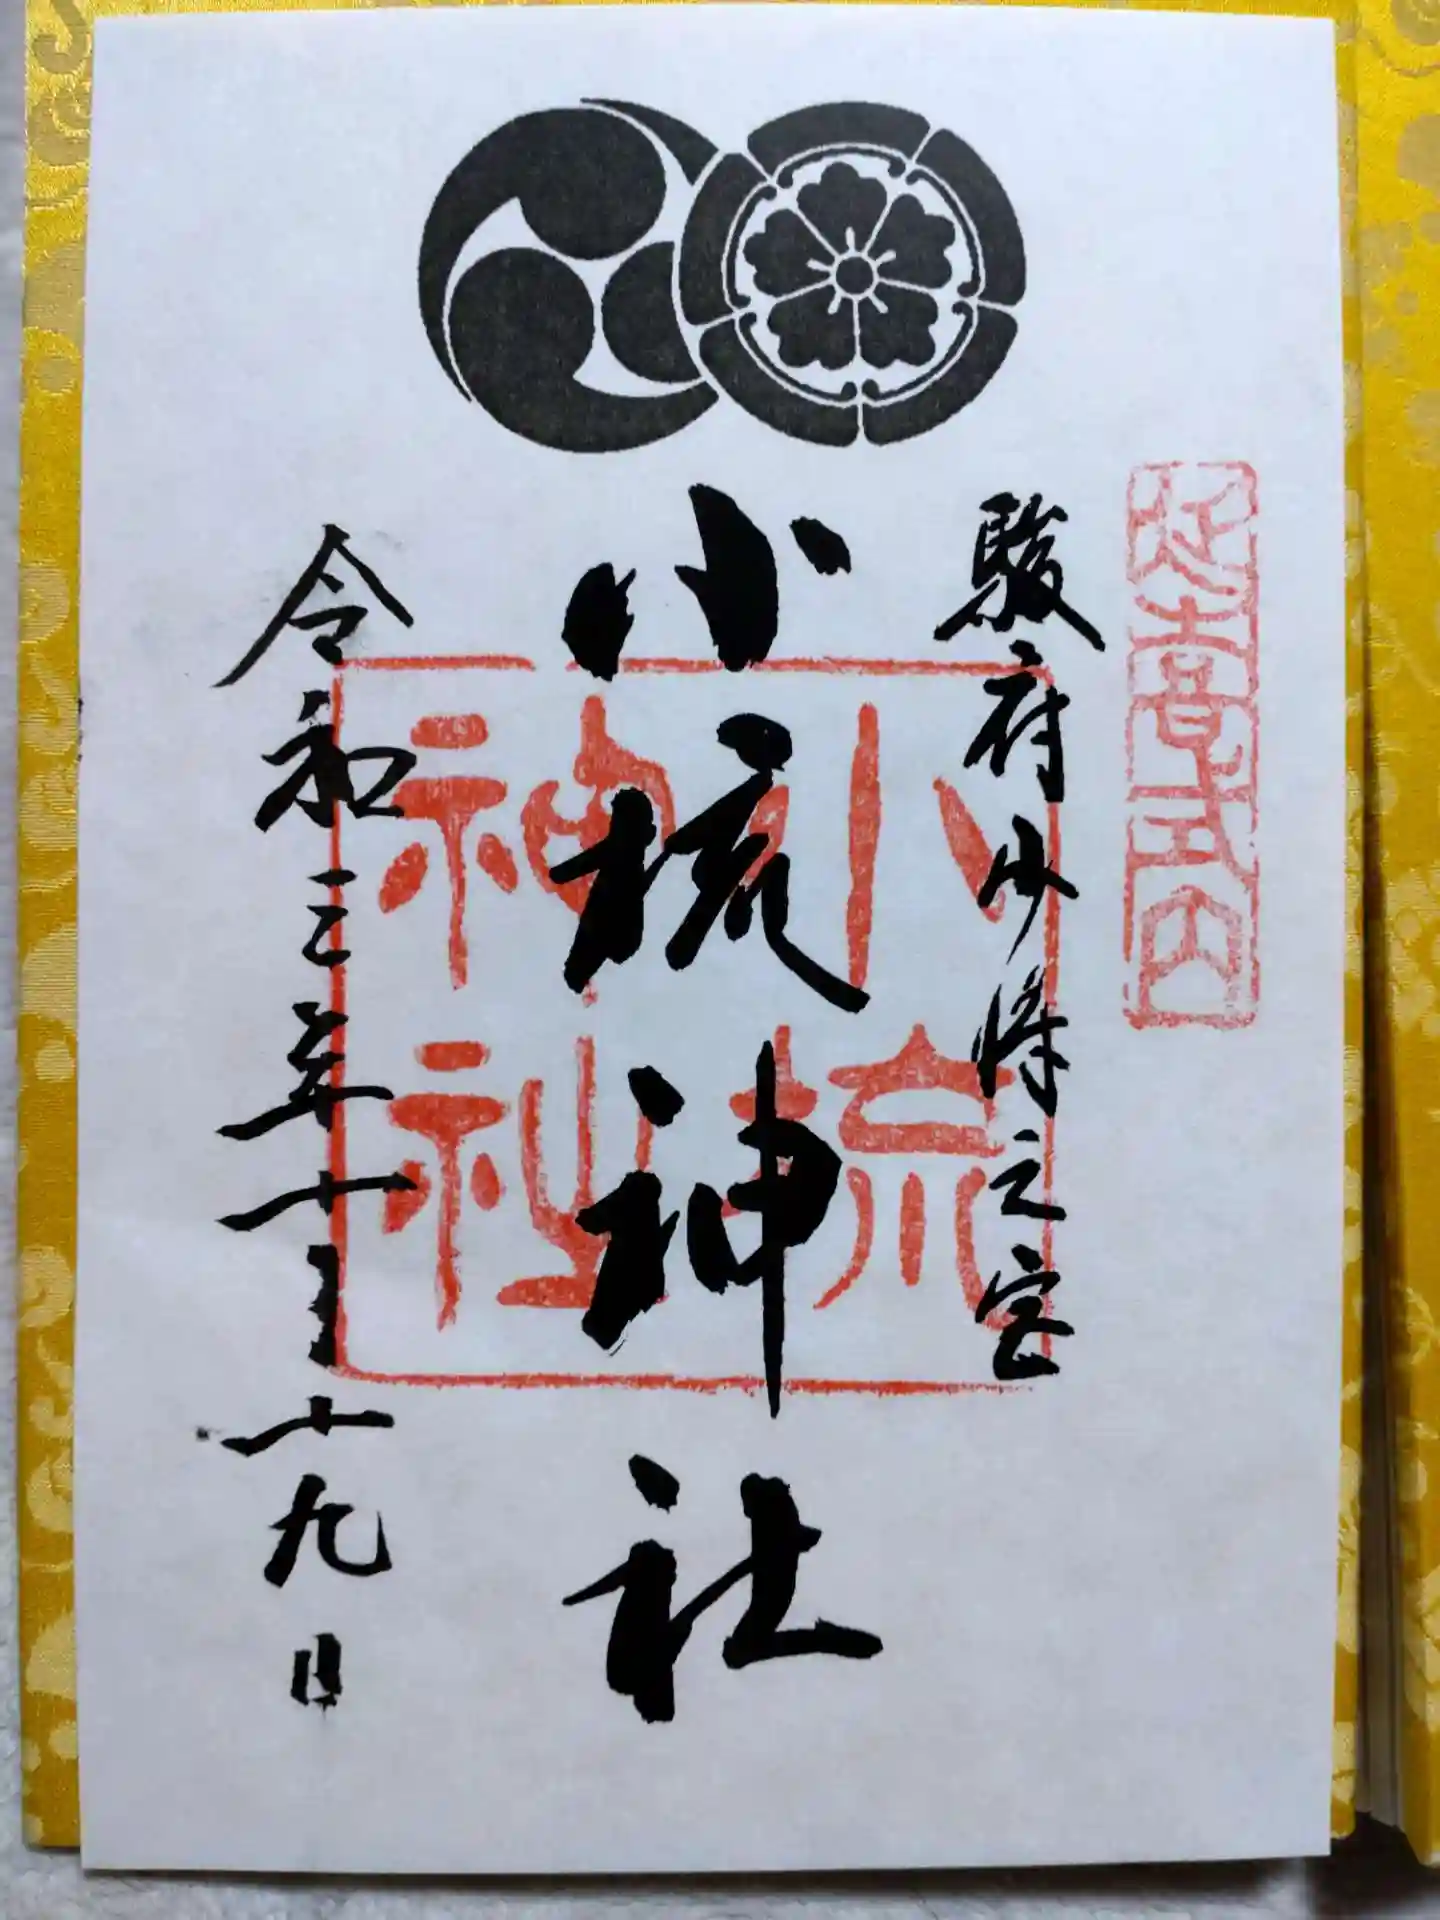 延喜式内
駿府少将之宮
小梳神社
小梳
神社
令和三年十月十九日